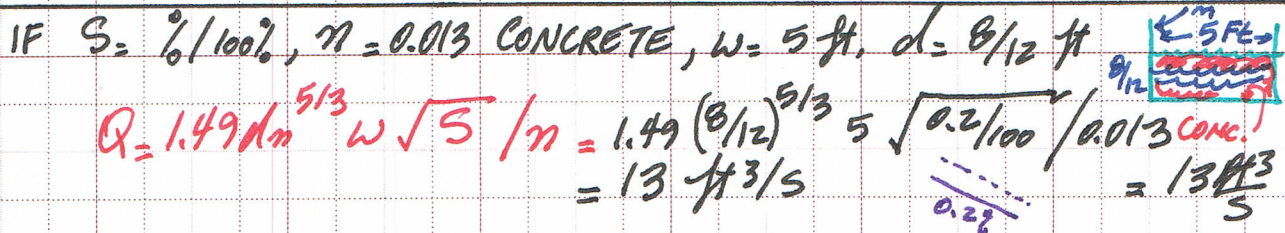 IF S= %/100%, n=0.013 CONCRETE, w= 5 ft, d= 8/12 ft
n
5 Ft
8/12
Q= 1.49 dn^5/3 w √S /n = 1.49 (8/12)^5/3 5 √0.2/100 /0.013 CONC.
= 13 ft3/s
= 13 ft3/s